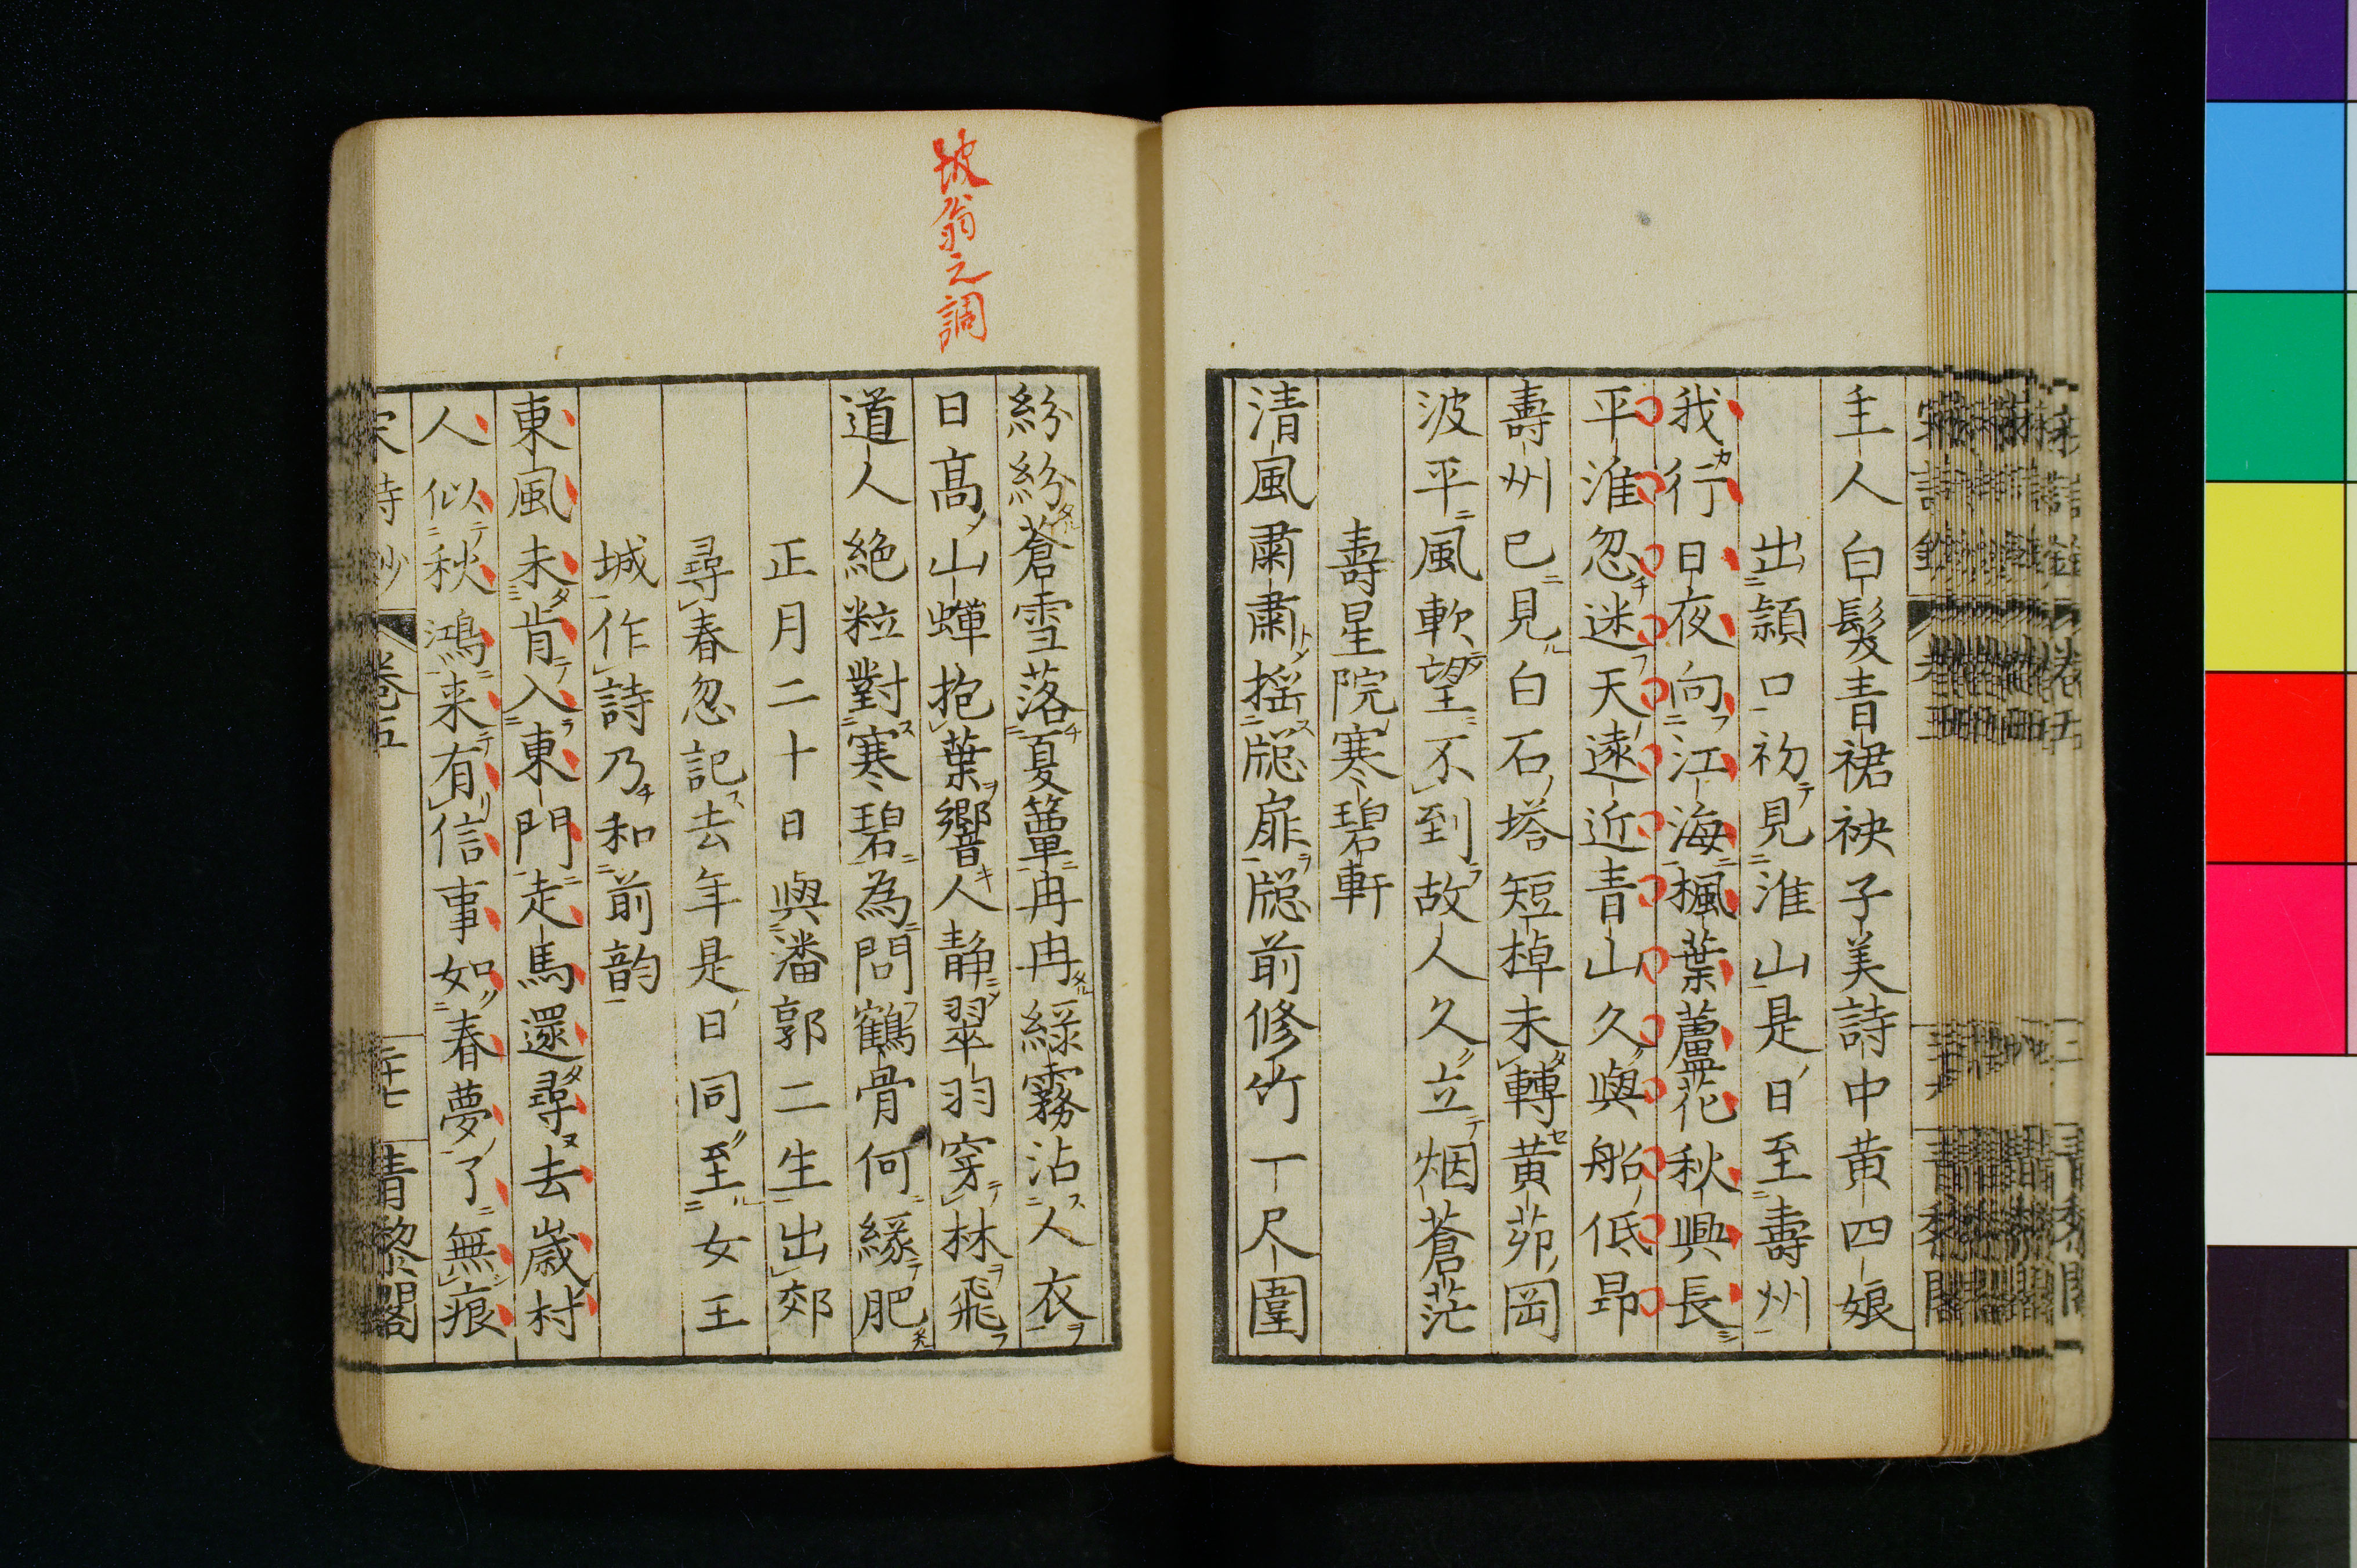 主人白髮青裙袂子美詩中黃四娘
出頴口初見淮山是日至壽州
我行日夜向江海楓葉蘆花秋興長
平淮忽迷天遠近青山久與船低昂
壽州已見白石塔短棹未轉黃茆岡
波平風軟望不到故人久立烟蒼茫
壽星院寒碧軒
清風肅肅搖牕扉牕前修竹一尺圍
坡翁之調
紛紛蒼雪落夏簟冉冉緑霧沾人衣
日高山蟬抱葉響人静翠羽穿林飛
道人絶粒對寒碧為問鶴骨何緣肥
正月二十日與潘郭二生出郊
尋春忽記去年是日同至女王
城作詩乃和前韵
東風未肯入東門走馬還尋去歲村
人似秋鴻来有信事如春夢了無痕
宋詩鈔 卷五 二十七 青黎閣